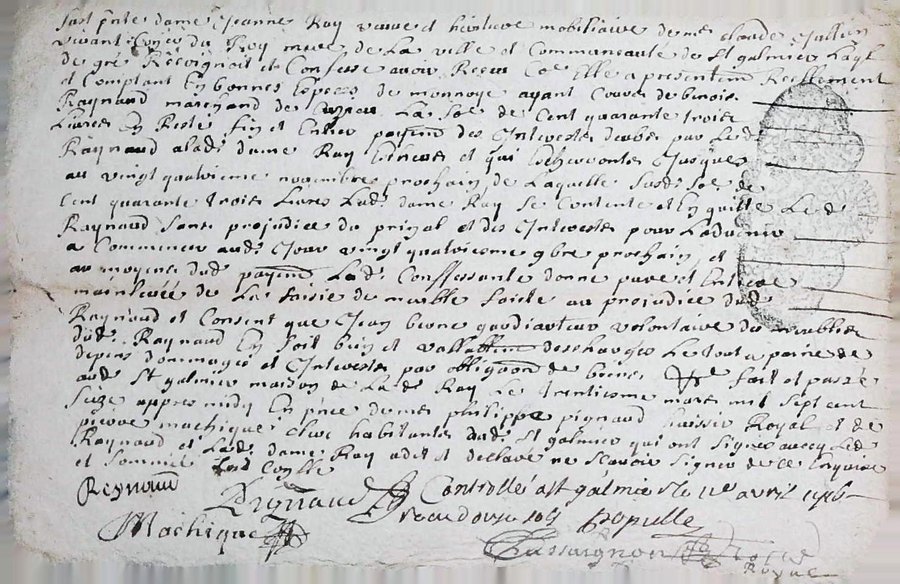 fust pnte dame Jeanne Ray veuve et heritiere mobiliaire de me Claude Jullien
vivant Conser du Roy maire de La ville et Communauté de St galmier Laqlle
de gré Recognoit et Confesse avoir Receu Coe Elle a presentemt Reellement
et Comptant En bonnes Especes de monnoye ayant Cours de benoist
Raynaud marchand des La soe de Cent quarante trois
Livres En Reste fin et Entier payemt des Interestes deubes par Led
Raynaud a lade dame Ray Echeues et qui Escherrontes Jusques
au vingt quatrieme novembre prochain, de Laquelle susde soe de
Cent quarante trois Livres Lade dame Ray se Contente et En quitte Led
Raynaud sans prejudice du prinpal et des Interestes pour Ladvenir
a Commencer aud Jour vingt quatriesme 9bre prochain, et
au moyens dud payemt Lade Confessante donne pure et Entiere
mainlevée de La saisie de meuble faicte au prejudice dud
Raynaud et Consent que Jean gardiateur volontaire du meubles
dud Raynaud En soit bien et vallablemt descharges Le tout a paine de
depens dommages et Interestes par obligaon de biens fait et passé
aud St galmier maison de Lade de Ray Le trentiesme mars mil sept cent
seize appres midy En pnce de me philippe pignaud huissier Royal et de
pierre machique clerc habitantes dud St galmier qui ont signés avecq Led
Raynaud et Lade dame Ray a dit et déclaré ne scavoir signer de ce Enquise
et sommée
Reynaud
Pignaud Controllé a St galmier le 1er avril 1716
Machique Ropulle
Chassaignon Royal